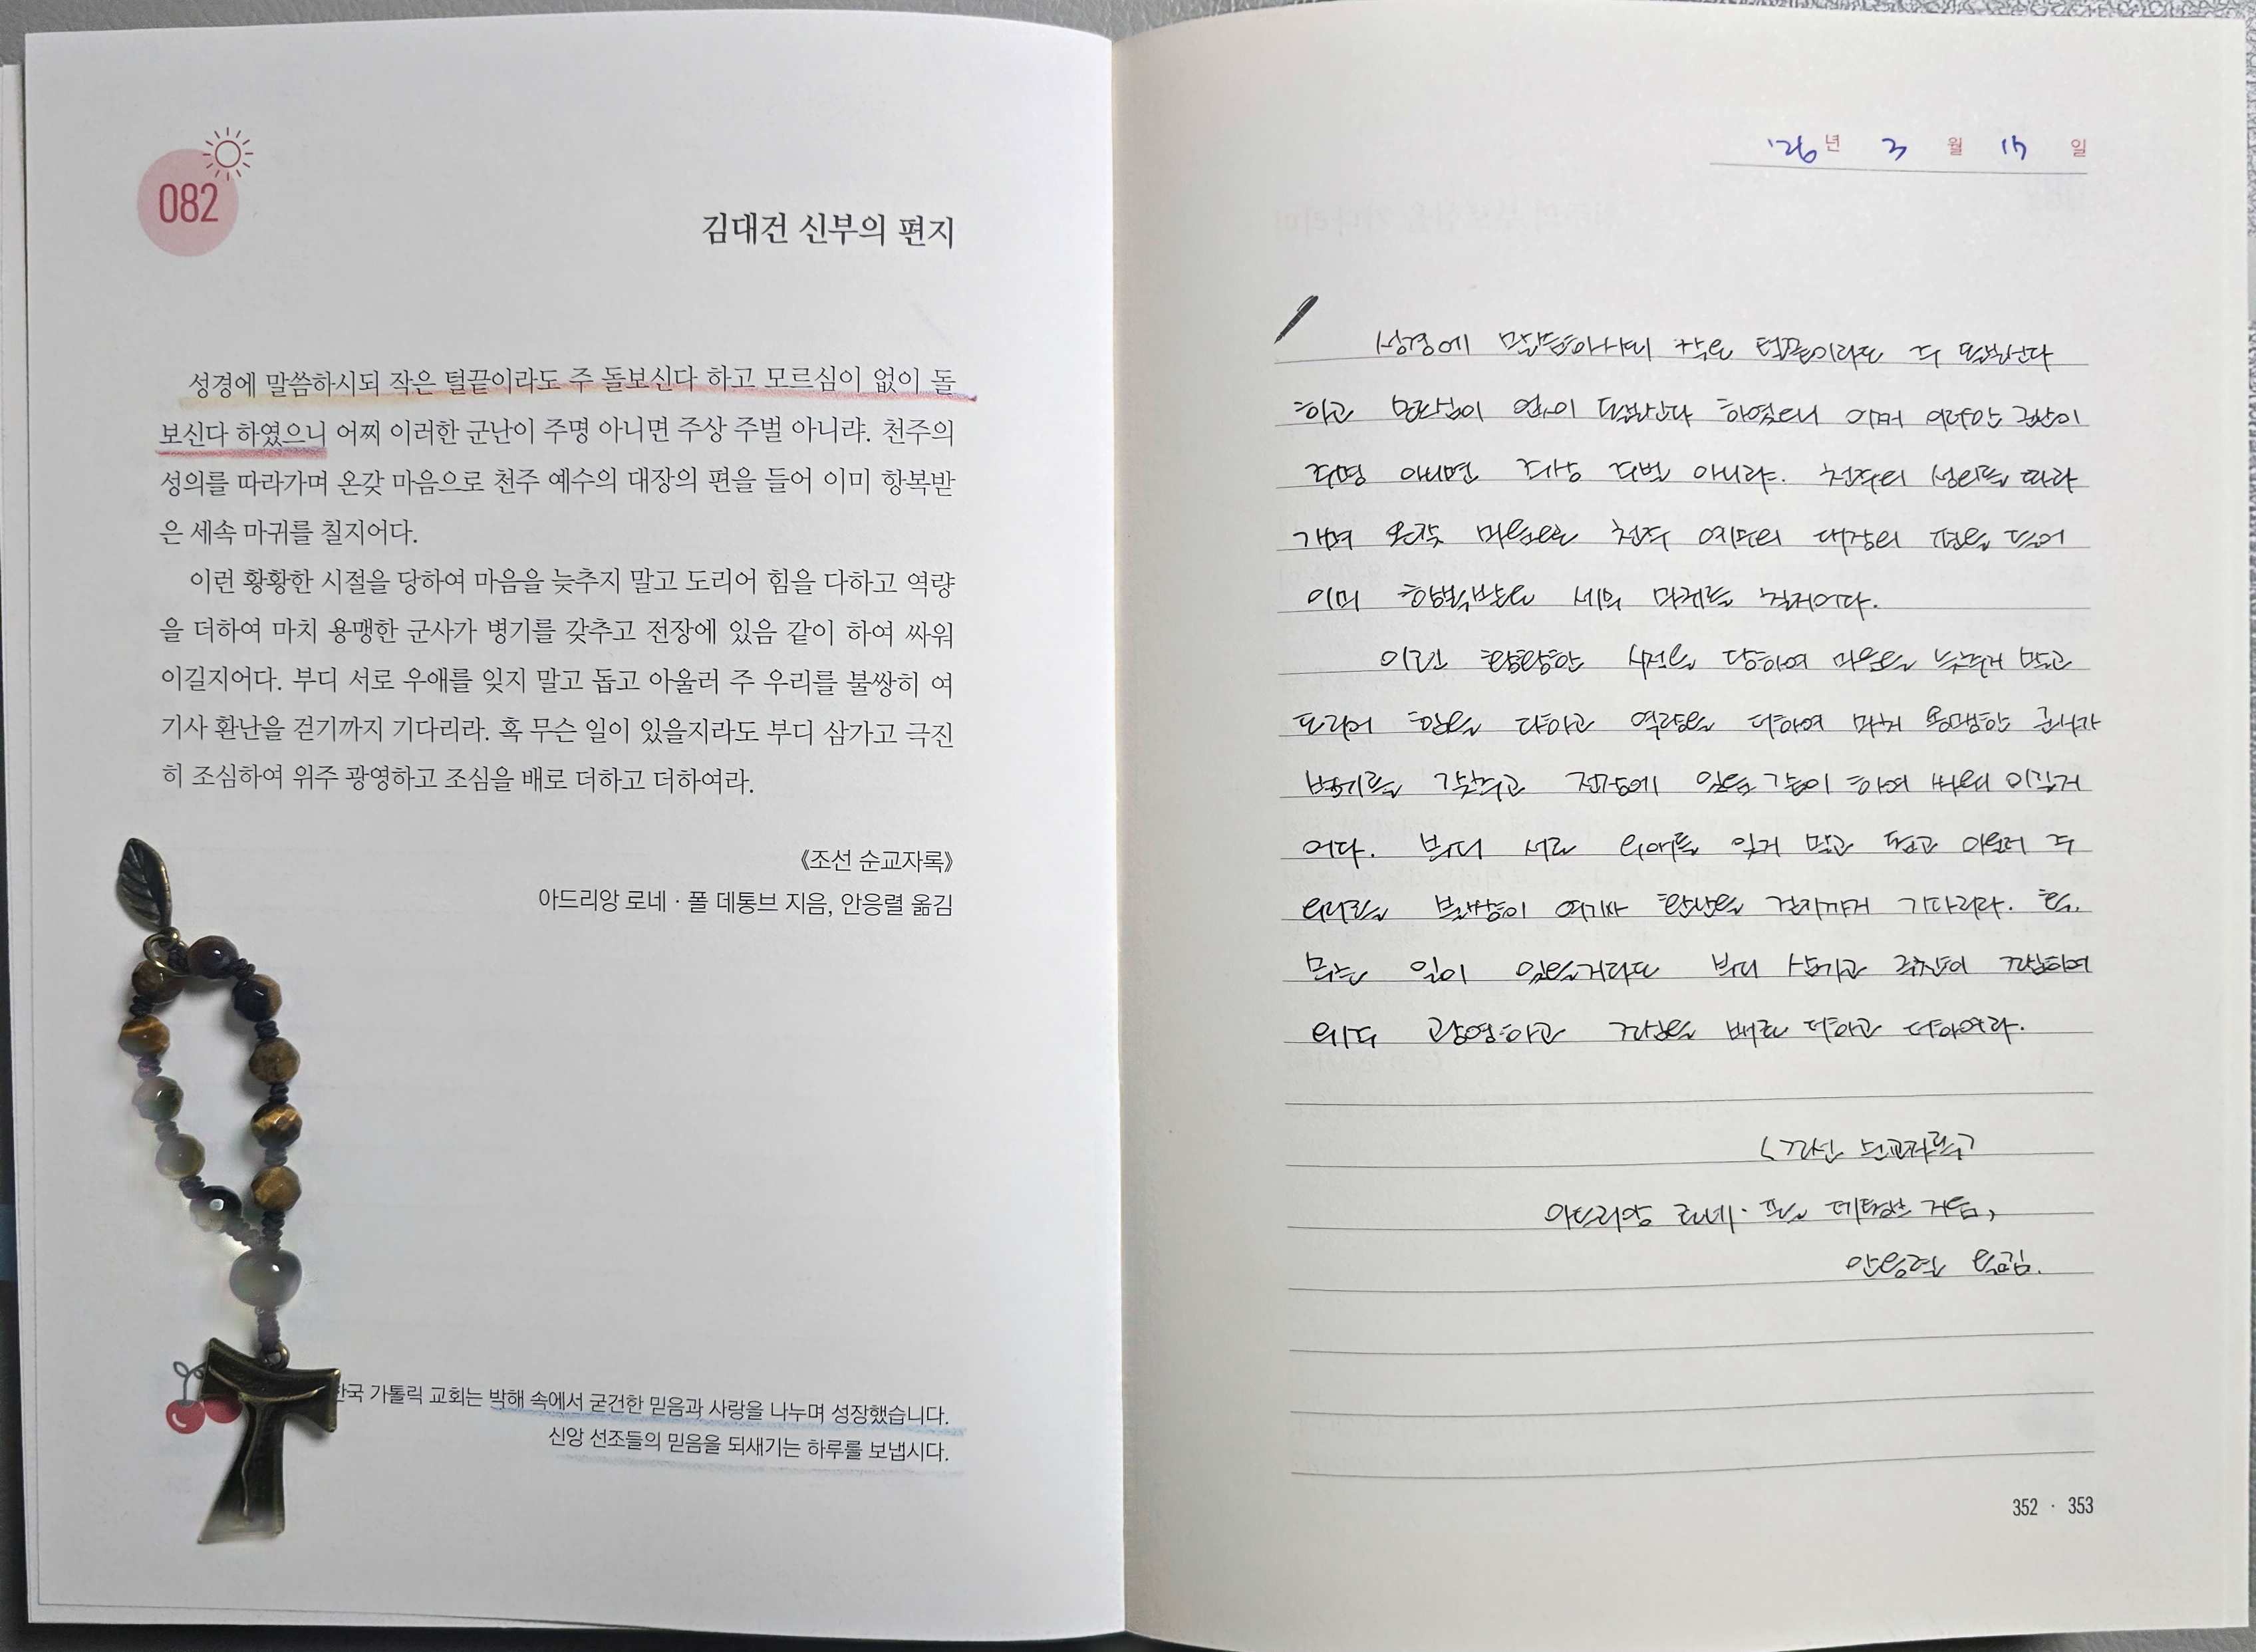 082
김대건 신부의 편지
성경에 말씀하시되 작은 털끝이라도 주 돌보신다 하고 모르심이 없이 돌
보신다 하였으니 어찌 이러한 군난이 주명 아니면 주상 주벌 아니랴. 천주의
성의를 따라가며 온갖 마음으로 천주 예수의 대장의 편을 들어 이미 항복받
은 세속 마귀를 칠지어다.
이런 황황한 시절을 당하여 마음을 늦추지 말고 도리어 힘을 다하고 역량
을 더하여 마치 용맹한 군사가 병기를 갖추고 전장에 있음 같이 하여 싸워
이길지어다. 부디 서로 우애를 잊지 말고 돕고 아울러 주 우리를 불쌍히 여
기사 환난을 걷기까지 기다리라. 혹 무슨 일이 있을지라도 부디 삼가고 극진
히 조심하여 위주 광영하고 조심을 배로 더하고 더하여라.
《조선 순교자록》
아드리앙 로네 · 폴 데통브 지음, 안응렬 옮김
한국 가톨릭 교회는 박해 속에서 굳건한 믿음과 사랑을 나누며 성장했습니다.
신앙 선조들의 믿음을 되새기는 하루를 보냅시다.
'26년 3월 17일
성경에 말씀하시되 작은 털끝이라도 주 돌보신다
하고 모르심이 없이 돌보신다 하였으니 어찌 이러한 군난이
주명 아니면 주상 주벌 아니랴. 천주의 성의를 따라
가며 온갖 마음으로 천주 예수의 대장의 편을 들어
이미 항복받은 세속 마귀를 칠지어다.
이런 황황한 시절을 당하여 마음을 늦추지 말고
도리어 힘을 다하고 역량을 더하여 마치 용맹한 군사가
병기를 갖추고 전장에 있음 같이 하여 싸워 이길지
어다. 부디 서로 우애를 잊지 말고 돕고 아울러 주
우리를 불쌍히 여기사 환난을 걷기까지 기다리라. 혹
무슨 일이 있을지라도 부디 삼가고 극진히 조심하여
위주 광영하고 조심을 배로 더하고 더하여라.
<조선 순교자록>
아드리앙 로네 · 폴 데통브 지음,
안응렬 옮김.
352 · 353